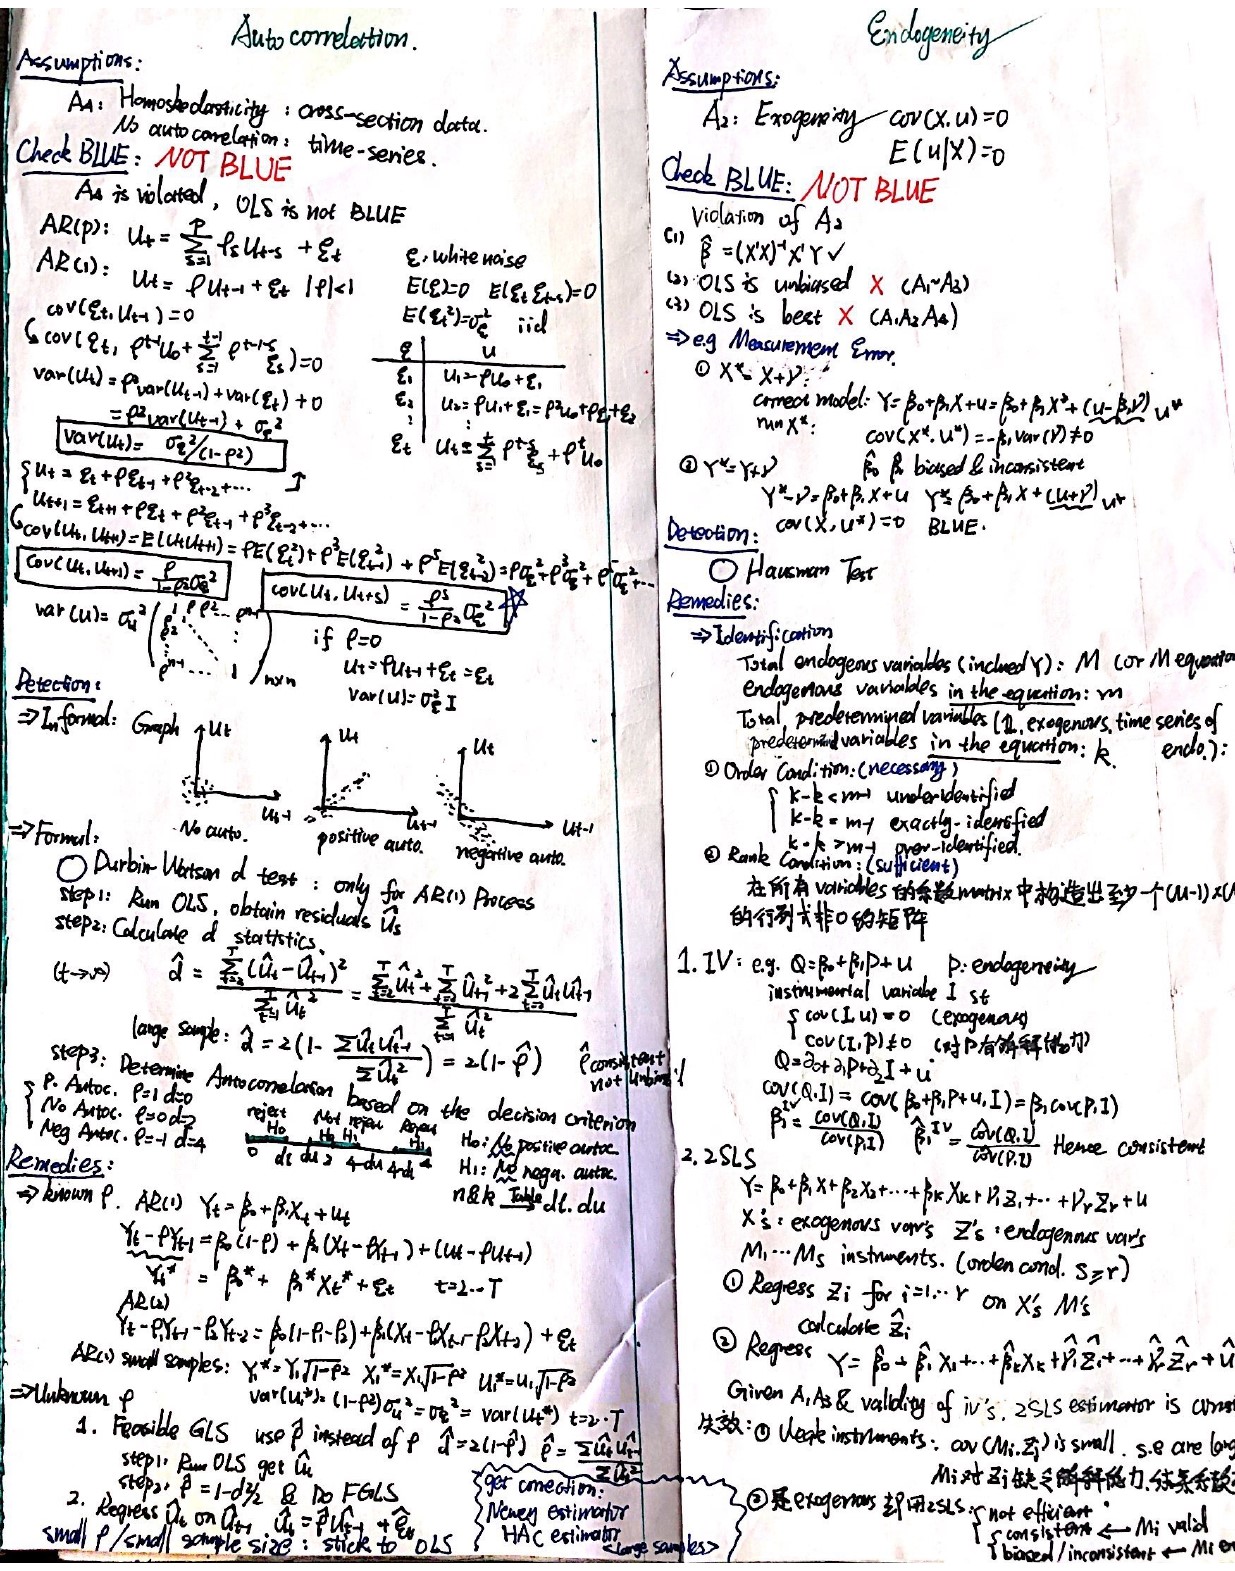 Autocorrelation.
Assumptions:
A4: Homoskedasticity: cross-section data.
No autocorrelation: time-series.
Check BLUE: NOT BLUE
A4 is violated, OLS is not BLUE
AR(p): Ut = Σ_{s=1}^{p} ρs Ut-s + εt
AR(1): Ut = ρUt-1 + εt |ρ|<1
ε: white noise
E(ε)=0 E(εt εt-s)=0
E(εt²)=σε² iid
cov(εt, Ut-1)=0
cov(εt, ρ^{t-1}U0 + Σ_{s=1}^{t-1} ρ^{t-1-s} εs)=0
var(Ut) = ρ²var(Ut-1) + var(εt) + 0
= ρ²var(Ut-1) + σε²
var(Ut) = σε²/(1-ρ²)
ε | u
ε1 | U1 = ρU0 + ε1
ε2 | U2 = ρU1 + ε1 = ρ²U0 + ρε1 + ε2
εt | Ut = Σ_{s=1}^{t} ρ^{t-s} εs + ρ^t U0
Ut = εt + ρεt-1 + ρ²εt-2 + ...
Ut+1 = εt+1 + ρεt + ρ²εt-1 + ρ³εt-2 + ...
cov(Ut, Ut+1) = E(UtUt+1) = ρE(εt²) + ρ³E(εt-1²) + ρ⁵E(εt-2²) = ρσε² + ρ³σε² + ρ⁵σε² + ...
cov(Ut, Ut+1) = ρ/(1-ρ²) σε²
cov(Ut, Ut+s) = ρ^s/(1-ρ²) σε²
var(U) = σu² ( 1 ρ ρ² ... ρ^{n-1} ρ 1 ρ² ... ρ^{n-1} ... 1 ) n×n
if ρ=0
Ut = ρUt-1 + εt = εt
var(U) = σε² I
Detection:
⇒ Informal: Graph
Ut Ut-1 No auto.
Ut Ut-1 positive auto.
Ut Ut-1 negative auto.
⇒ Formal:
○ Durbin Watson d test: only for AR(1) Process
step1: Run OLS, obtain residuals Ûs
step2: Calculate d statistics.
(t→∞) d̂ = Σ_{t=2}^{T}(Ût - Ût-1)² / Σ_{t=1}^{T} Ût² = (Σ_{t=2}^{T} Ût² + Σ_{t=2}^{T} Ût-1² + 2Σ_{t=2}^{T} ÛtÛt-1) / Σ_{t=1}^{T} Ût²
large sample: d̂ = 2(1 - ΣÛtÛt-1/ΣÛt²) = 2(1-ρ̂) ρ̂ consistent not unbias!
step3: Determine Autocorrelation based on the decision criterion
P. Autoc. ρ=1 d=0
No Autoc. ρ=0 d=2
Neg Autoc. ρ=-1 d=4
reject H0 Not reject H0 H1 Reject H1
0 dL du 2 4-du 4-dL 4
H0: No positive autoc.
H1: No nega. autoc.
n&k Table dL. du
Remedies:
⇒ known ρ. AR(1) Yt = β0 + β1Xt + ut
Yt - ρYt-1 = β0(1-ρ) + β1(Xt - ρXt-1) + (ut - ρut-1)
Yt* = β0* + β1*Xt* + εt t=2...T
AR(2)
Yt - ρ1Yt-1 - ρ2Yt-2 = β0(1-ρ1-ρ2) + β1(Xt - ρ1Xt-1 - ρ2Xt-2) + εt
AR(1) small samples: Y1* = Y1√1-ρ² X1* = X1√1-ρ² U1* = U1√1-ρ²
var(U1*) = (1-ρ²)σu² = σε² = var(Ut*) t=2...T
⇒ Unknown ρ
1. Feasible GLS use ρ̂ instead of ρ d̂=2(1-ρ̂) ρ̂ = ΣÛtÛt-1/ΣÛt²
step1: Run OLS get Û
step2: ρ̂ = 1-d/2 & Do FGLS
2. Regress Ût on Ût-1 Ût = ρ̂Ût-1 + εt
small ρ / small sample size: stick to OLS
get correction:
Newey estimator
HAC estimator
<large samples>
Endogeneity
Assumptions:
A2: Exogeneity cov(X,u)=0
E(u|X)=0
Check BLUE: NOT BLUE
Violation of A2
(1) β̂ = (X'X)⁻¹X'Y ✓
(2) OLS is unbiased X (A1~A3)
(3) OLS is best X (A1A2A4)
⇒ e.g Measurement Error.
① X* = X+γ:
correct model: Y = β0+β1X+u = β0+β1X*+(u-β1γ) u*
run X*: cov(X*, u*) = -β1var(γ) ≠ 0
β̂0 β̂1 biased & inconsistent
② Y* = Y+γ
Y*-γ = β0+β1X+u Y* = β0+β1X+(u+γ) u*
cov(X, u*)=0 BLUE.
Detection:
○ Hausman Test
Remedies:
⇒ Identification
Total endogenous variables (inclued Y): M (or M equation
endogenous variables in the equation: m
Total predetermined variables (1, exogenous, time series of endo.):
predetermined variables in the equation: k
① Order Condition: (necessary)
k-k < m-1 under identified
k-k = m-1 exactly-identified
k-k > m-1 over-identified.
② Rank Condition: (sufficient)
在所有 variables 的系数 matrix 中构造出至少一个 (M-1)×(M
的行列式非0的矩阵
1. IV: e.g. Q=β0+β1P+u P: endogeneity
instrumental variable I st
cov(I,u)=0 (exogenous)
cov(I,P)≠0 (对P有解释能力)
Q=∂0+∂1P+∂2I+u
cov(Q,I) = cov(β0+β1P+u,I) = β1cov(P,I)
β1^IV = cov(Q,I)/cov(P,I) β̂1^IV = ĉov(Q,I)/ĉov(P,I) Hence consistent
2. 2SLS
Y = β0+β1X+β2X2+...+βkXk+γ1Z1+...+γrZr+u
X's: exogenous var's Z's: endogenous var's
M1...Ms instruments. (orden cond. s≥r)
① Regress Zi for i=1...r on X's M's
calculate Ẑi
② Regress Y = β̂0+β̂1X1+...+β̂kXk+γ̂1Ẑ1+...+γ̂rẐr+û
Given A1,A3 & validity of iv's, 2SLS estimator is const
失效: ① Weak instruments: cov(Mi,Zj) is small. s.e are larg
Mi对Zi缺乏解释能力,
② 是exogenous 却用2SLS: not efficient
consistent ← Mi valid
biased/inconsistent ← Mi